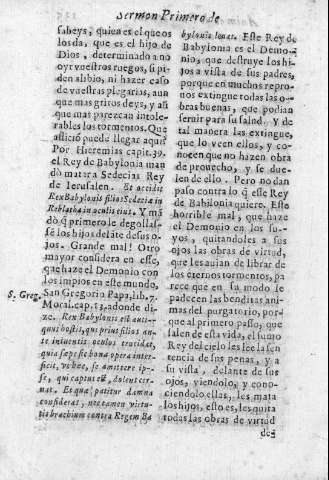 Sermon Primero de
sabeys, quien es el que os
los da, que es el hijo de
Dios, determinado a no
oyr vuestros ruegos, si pi-
den alibio, ni hazer caso
de vuestras plegarias, aun
que mas griros deys, y assi
que mas parezcan intole-
rables los tormentos. Que
afliciõ puede llegar aqui?
Por Hieremias capit. 39.
el Rey de Babylonia man
dò matar a Sedecias Rey
de Ierusalen. Et occidit
Rex Babylonis filios Sedeciæ in
Reblatha in oculis eius. Y mã
dò q̃ primero le degollas-
se los hijos delãte de sus o-
jos. Grande mal! Otro
mayor considera en esse,
que haze el Demonio con
los impios en este mundo,
S. Greg. San Gregorio Papa, lib. 7.
Moral. cap. 13. adonde di-
ze. Rex Babylonis est anti-
quus hostis, qui prius filios an-
te intuentis oculos trucidat,
quia sæpè sic bona opera inter-
ficit, vt hæc, se amittere ip-
se, qui captus est, dolens cer-
nat. Et qua patitur damna
considerat, nec tamen virtu-
tis brachium contra Regem Ba
bylonis leuat. Esse Rey de
Babylonia es el Demo-
nio, que destruye los hi-
jos a vista de sus padres,
porque en muchos repro-
uos extingue todas las o-
bras buenas, que podian
seruir para su salud. Y de
tal manera las extingue,
que lo veen ellos, y co-
nocen que no hazen obra
de prouecho, y se due-
len de ello. Pero no dan
passo contra lo q̃ esse Rey
de Babilonia quiere. Esse
horrible mal, que haze
el Demonio en los su-
yos, quitandoles a sus
ojos las obras de virtud,
que les auian de librar de
los eternos tormentos, pa
rece que en su modo se
padecen las benditas ani-
mas del purgatorio, por-
que al primero passo, que
salen de esta vida, el sumo
Rey del cielo les lee la sen
tencia de sus penas, y a
su vista, delante de sus
ojos, viendolo, y cono-
ciendolo ellas, les mata
los hijos, esto es, les quita
todas las obras de virtud
des